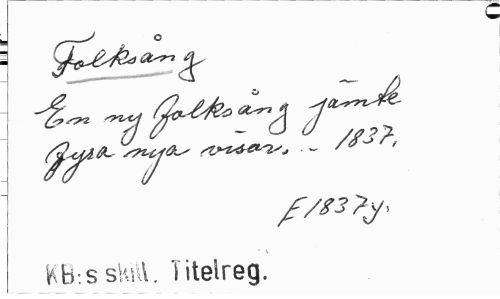 Folksång
En ny folksång jämte
fyra nya visor. - 1837.
E 1837y.
KB:s skill. Titelreg.